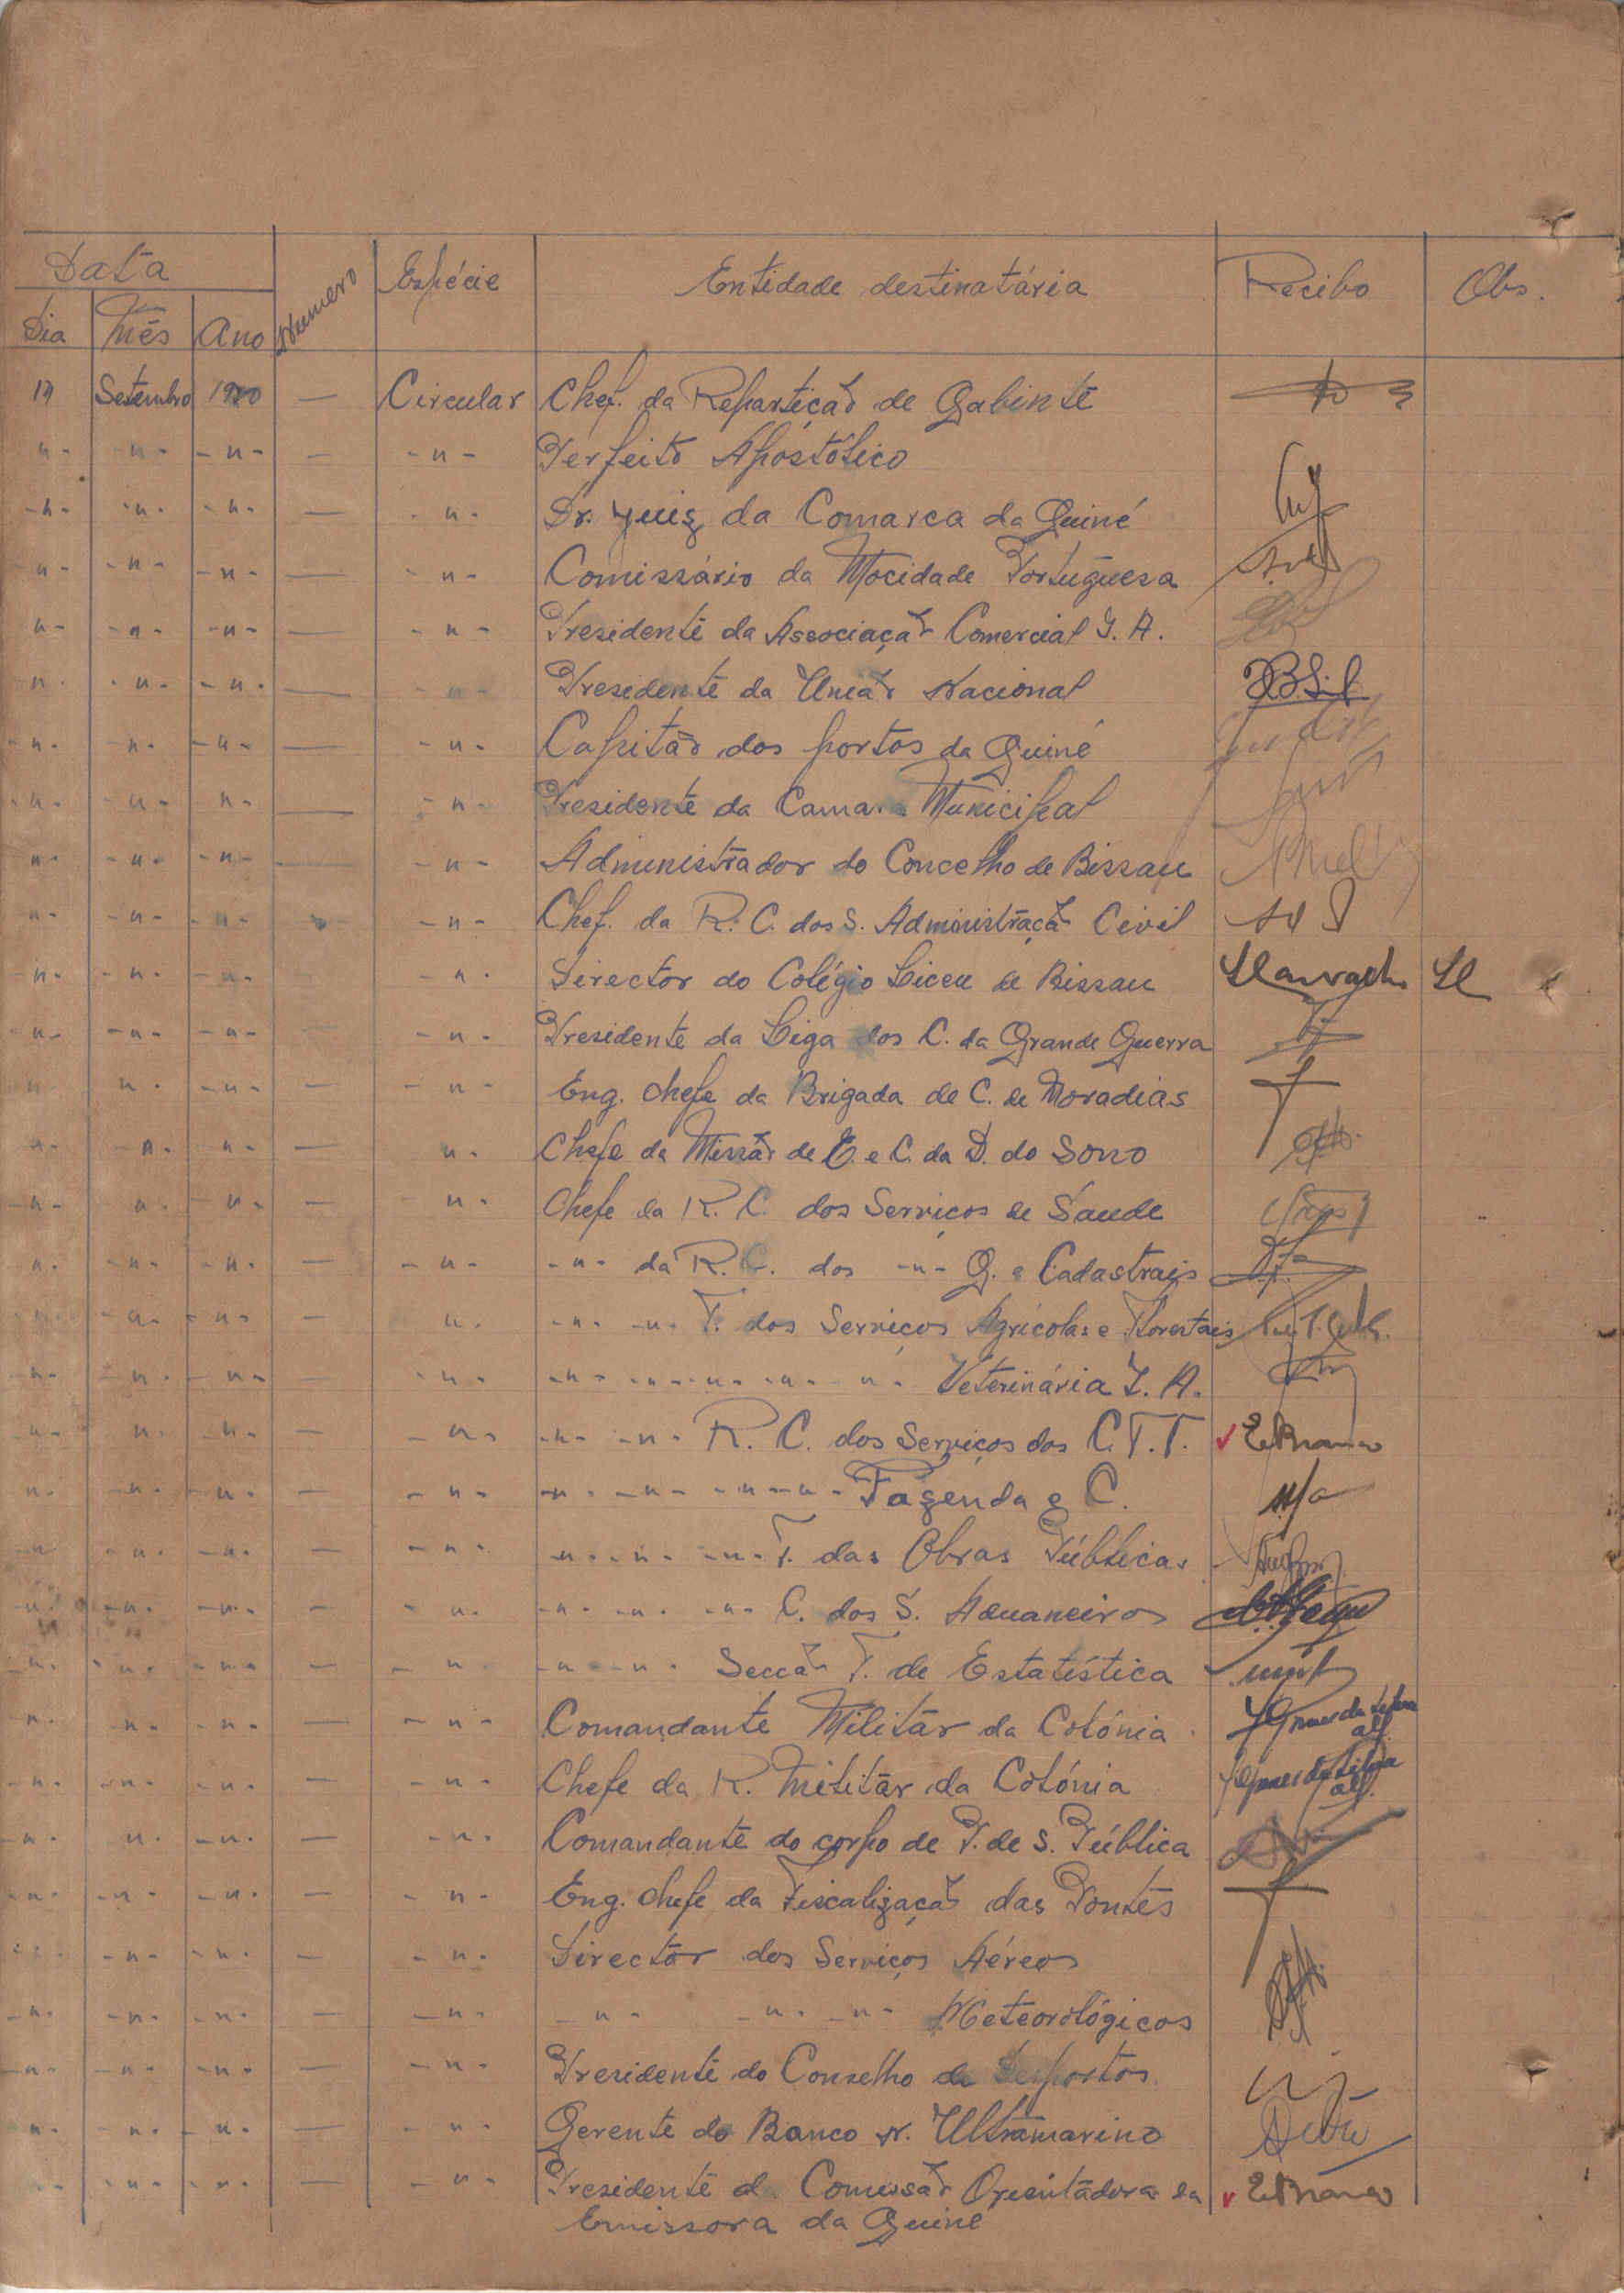 Data Numero Espécie Entidade destinatária Recibo Obs.
Dia Mês Ano
Setembro 1950 — Circular Chef. da Repartição de Gabinte
-"- -"- -"- — -"- Perfeito Apóstólico
-"- -"- -"- — -"- Dr. Juiz da Comarca da Guiné
-"- -"- -"- — -"- Comissário da Mocidade Portuguesa
-"- -"- -"- — -"- Presidente da Associação Comercial I. A.
-"- -"- -"- — -"- Presidente da União Nacional
-"- -"- -"- — -"- Capitão dos portos da Guiné
-"- -"- -"- — -"- Presidente da Camara Municipal
-"- -"- -"- — -"- Administrador do Concelho de Bissau
-"- -"- -"- -"- Chef. da R. C. dos S. Administração Civil
-"- -"- -"- -"- Director do Colégio Liceu de Bissau
-"- -"- -"- -"- Presidente da Liga dos C. da Grande Guerra
-"- -"- -"- — -"- Eng. Chefe da Brigada de C. de Moradias
-"- -"- -"- — -"- Chefe da Missão de E. e C. da D. do Sono
-"- -"- -"- — -"- Chefe da R. C. dos Serviços de Saude
-"- -"- -"- — -"- -"- da R. C. dos -"- G. e Cadastrais
-"- -"- -"- — -"- -"- -"- T. dos Serviços Agrícolas e Florestais
-"- -"- -"- — -"- -"- -"- -"- -"- -"- Veterinária I. A.
-"- -"- -"- — -"- -"- -"- R. C. dos Serviços dos C.T.T.
-"- -"- -"- — -"- -"- -"- -"- -"- Fazenda e C.
-"- -"- -"- — -"- -"- -"- -"- T. das Obras Públicas
-"- -"- -"- — -"- -"- -"- -"- C. dos S. Aduaneiros
-"- -"- -"- — -"- -"- -"- Secção T. de Estatística
-"- -"- -"- — -"- Comandante Militar da Colónia
-"- -"- -"- — -"- Chefe da R. Militar da Colónia
-"- -"- -"- — -"- Comandante do corpo de P. de S. Pública
-"- -"- -"- — -"- Eng. Chefe da Fiscalização das Pontes
-"- -"- -"- — -"- Director dos Serviços Aéreos
-"- -"- -"- — -"- -"- -"- -"- Meteorológicos
-"- -"- -"- — -"- Presidente do Conselho de Desportos
-"- -"- -"- — -"- Gerente do Banco N. Ultramarino
-"- -"- -"- — -"- Presidente d. Comissão Orientadora da
Emissora da Guiné